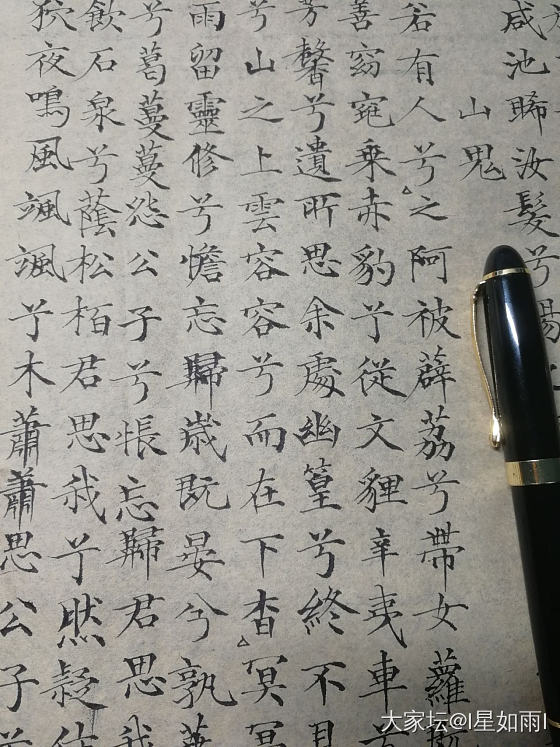 咸池晞汝髮兮陽
山鬼
若有人兮之阿被薜荔兮帶女蘿
善窈窕乘赤豹兮從文貍辛夷車
芳馨兮遺所思余處幽篁兮終不見
兮山之上雲容容兮而在下杳冥冥
雨留靈修兮憺忘歸歲既晏兮孰華
兮葛蔓蔓怨公子兮悵忘歸君思我
飲石泉兮蔭松栢君思我兮然疑作
狖夜鳴風颯颯兮木蕭蕭思公子兮
大家坛@I星如雨I